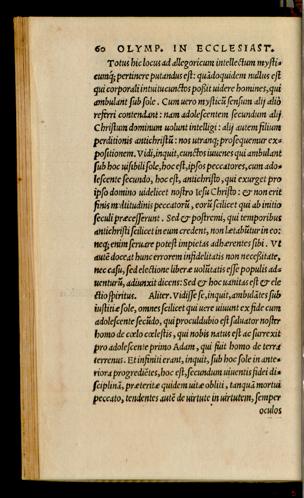 60 OLYMP. IN ECCLESIAST.
Totus hic locus ad allegoricum intellectum mysti-
cumq; pertinere putandus est: quādoquidem nullus est
qui corporali intuitu cunctos possit uidere homines, qui
ambulant sub sole. Cum uero mysticū sensum alij aliò
referri contendant: nam adolescentem secundum alij
Christum dominum uolunt intelligi: alij autem filium
perditionis antichristū: nos utranq; prosequemur ex-
positionem. Vidi, inquit, cunctos iuuenes qui ambulant
sub hoc uisibili sole, hoc est, ipsos peccatores, cum ado-
lescente secundo, hoc est, antichristo, qui exurget pro
ipso domino uidelicet nostro Iesu Christo: & non erit
finis multitudinis peccatorū, eorū scilicet qui ab initio
seculi præcesserunt. Sed & postremi, qui temporibus
antichristi scilicet in eum credent, non lætabūtur in eo:
neq; enim seruare potest impietas adhærentes sibi. Vt
autē doceat hunc errorem infidelitatis non necessitate,
nec casu, sed electione liberæ uolūtatis esse populis ad-
uenturū, adiunxit dicens: Sed & hoc uanitas est & ele
ctio spiritus. Aliter. Vidisse se, inquit, ambulātes sub
iustitiæ sole, omnes scilicet qui uere uiuunt ex fide cum
adolescente secūdo, qui proculdubio est saluator noster
homo de cœlo cœlestis, qui nobis natus est ac surrexit
pro adolescente primo Adam, qui fuit homo de terra
terrenus. Et infiniti erant, inquit, sub hoc sole in ante-
riora progrediētes, hoc est, secundum uiuentis fidei di-
sciplinā, præteritæ quidem uitæ obliti, tanquā mortui
peccato, tendentes autē de uirtute in uirtutem, semper
oculos